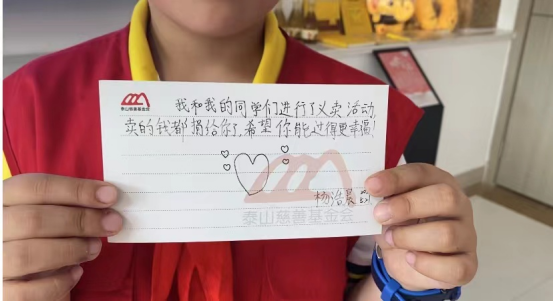 泰山慈善基金会
我和我的同学们进行了义卖活动,
卖的钱都捐给你了,希望你能过得更幸福!
泰山慈善基金会